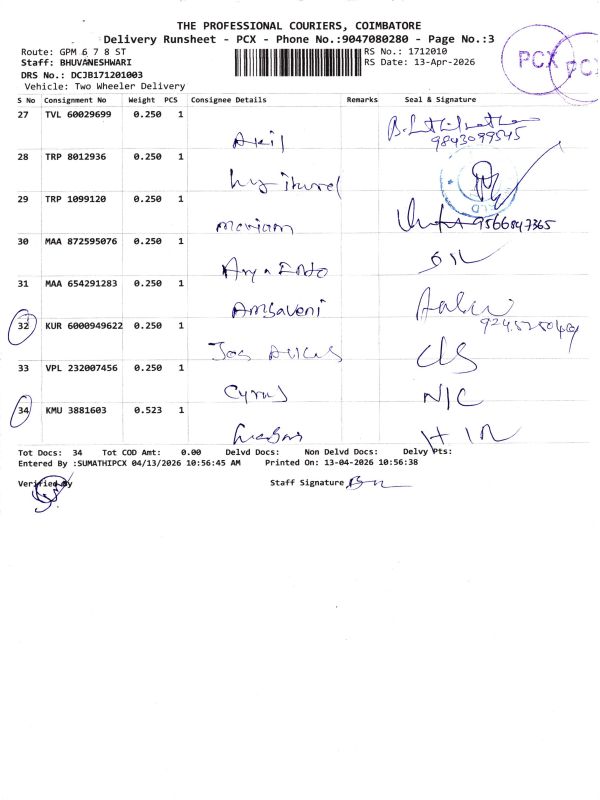 THE PROFESSIONAL COURIERS, COIMBATORE
Delivery Runsheet - PCX - Phone No.:9047080280 - Page No.:3
Route: GPM 6 7 8 ST
RS No.: 1712010
Staff: BHUVANESHWARI
RS Date: 13-Apr-2026
PCX
DRS No.: DCJB171201003
Vehicle: Two Wheeler Delivery
S No Consignment No Weight PCS Consignee Details Remarks Seal & Signature
27 TVL 60029699 0.250 1
Akil
9843099545
28 TRP 8012936 0.250 1
29 TRP 1099120 0.250 1
Mariam
9566847365
30 MAA 872595076 0.250 1
Arya Endo
31 MAA 654291283 0.250 1
Ambaveni
32 KUR 6000949622 0.250 1
Jos
33 VPL 232007456 0.250 1
Cyrus
N/C
34 KMU 3881603 0.523 1
Tot Docs: 34 Tot COD Amt: 0.00 Delvd Docs: Non Delvd Docs: Delvy Pts:
Entered By :SUMATHIPCX 04/13/2026 10:56:45 AM Printed On: 13-04-2026 10:56:38
Verified By
Staff Signature